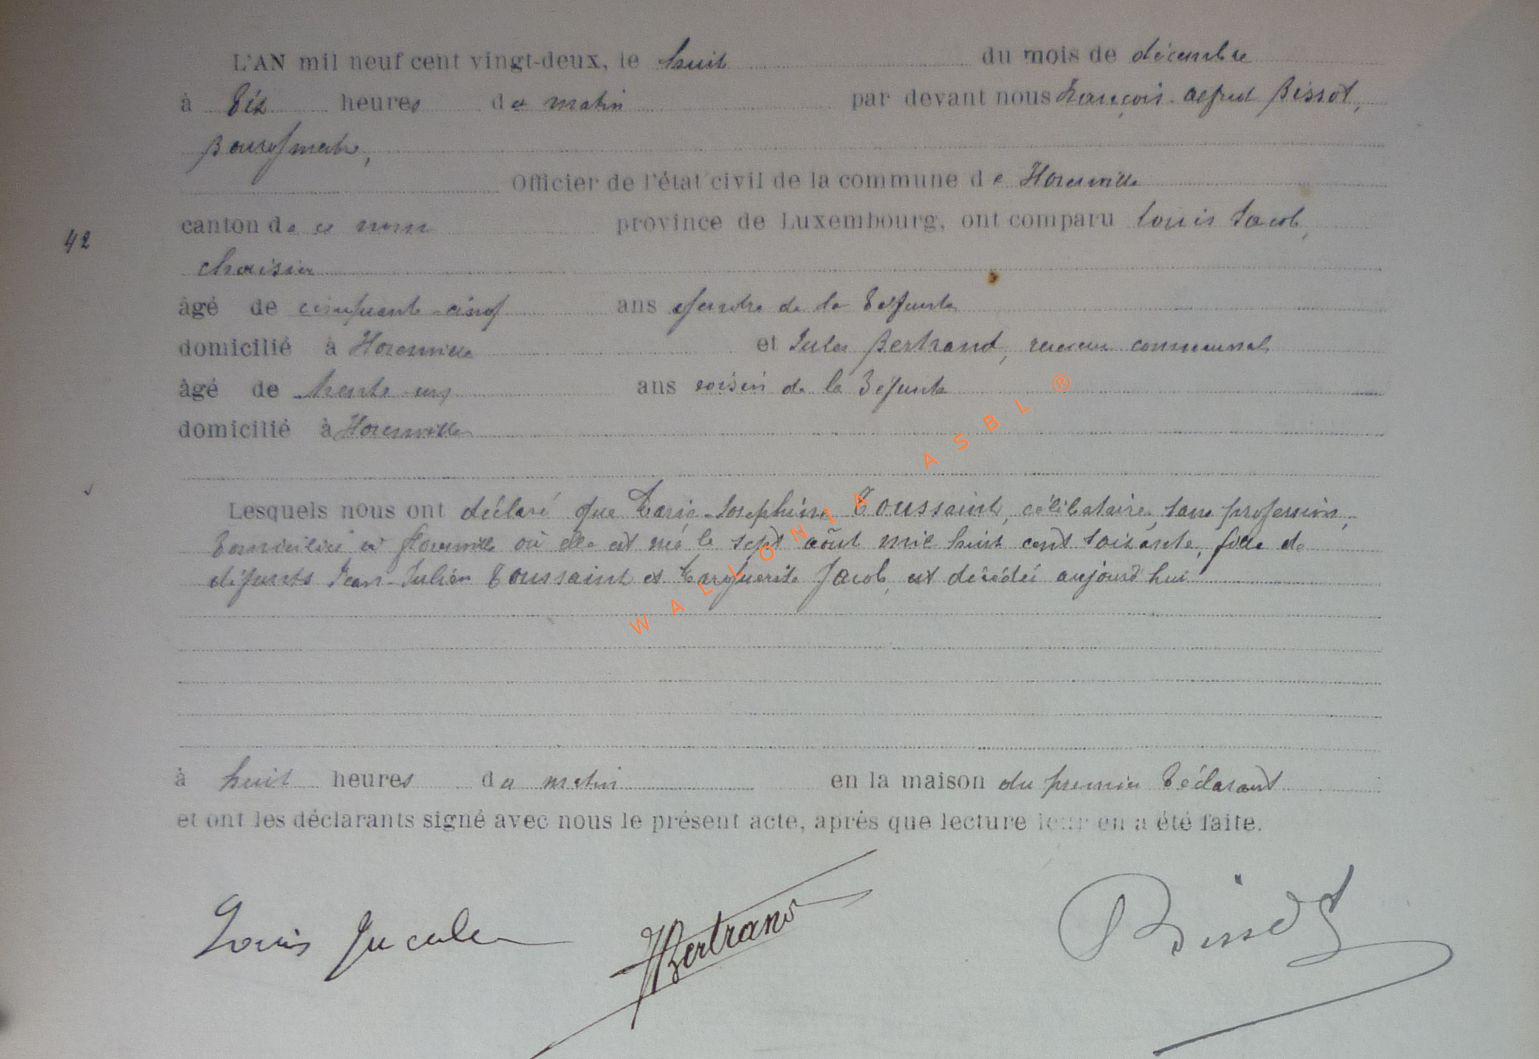 L'AN mil neuf cent vingt-deux, le huit du mois de décembre
à dix heures du matin par devant nous François-Alfred Bissot,
Bourgmestre,
Officier de l'état civil de la commune de Florenville
canton de ce nom province de Luxembourg, ont comparu Louis Jacob,
42
chaisier
âgé de cinquante-cinq ans gendre de la défunte
domicilié à Florenville et Jules Bertrand, receveur communal
âgé de trente-un ans voisin de la défunte
domicilié à Florenville
Lesquels nous ont déclaré que Marie-Josephine Toussaint, célibataire, sans profession,
domiciliée à Florenville où elle est née le sept août mil huit cent soixante, fille de
défunts Jean-Julien Toussaint et Marguerite Jacob, est décédée aujourd'hui
à huit heures du matin en la maison du premier déclarant
et ont les déclarants signé avec nous le présent acte, après que lecture leur en a été faite.
Louis Jacob
JBertrand
Bissot
WALLONIA ASBL ®